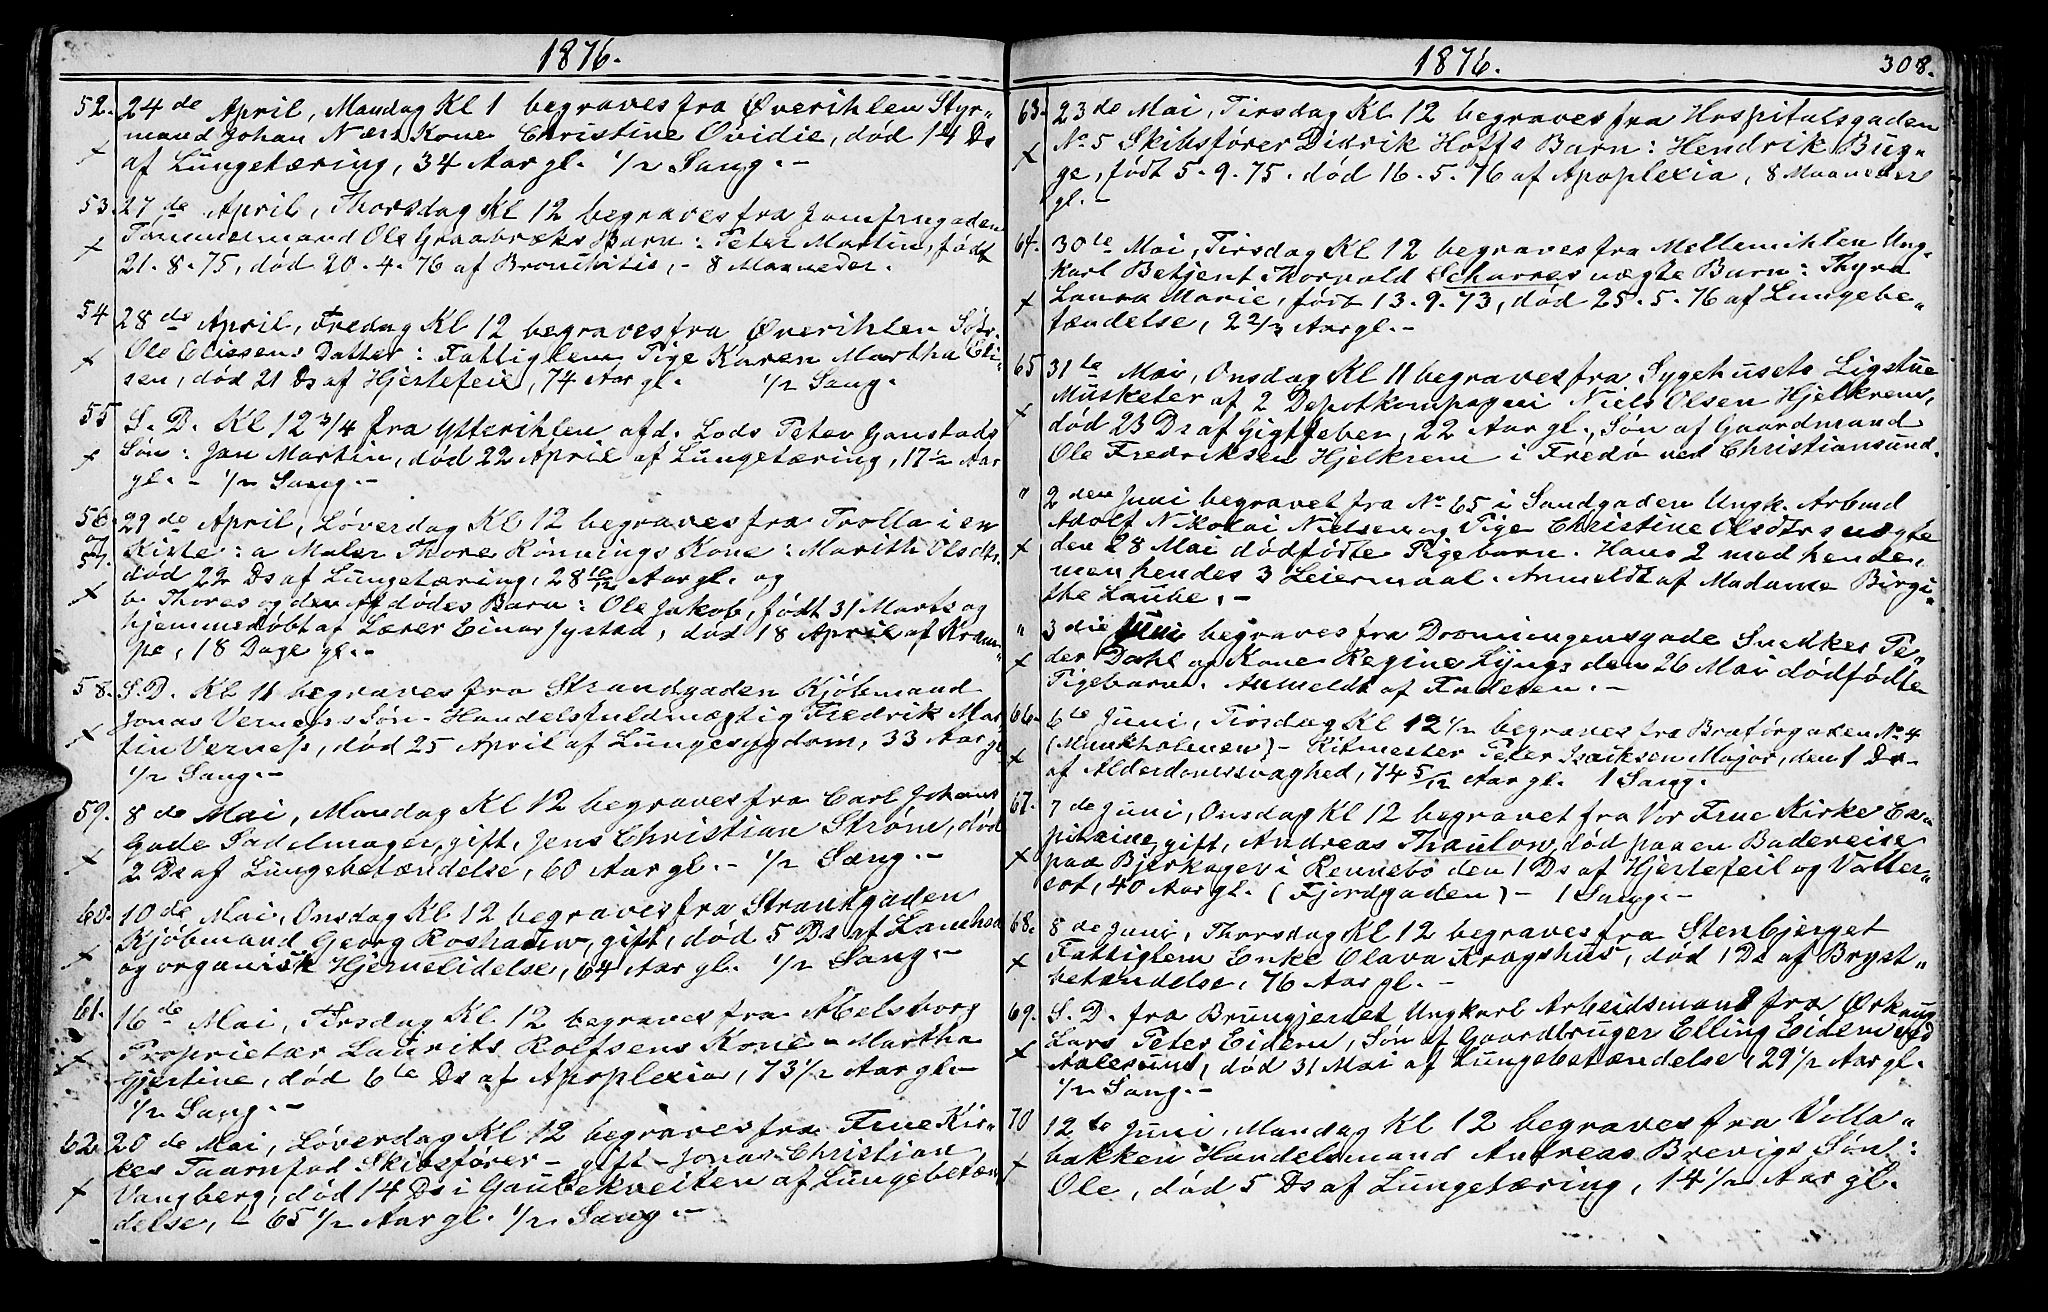 1876.
52. 24de April, Mandag Kl 1 begraves fra Øverihlen Styr-
mand Johan Næss Kone Christine Ovidie, død 14 Ds
af Lungetæring, 34 Aar gl. 1/2 Sang. -
53. 27de April, Thorsdag Kl 12 begraves fra Jomfrugaden
Tømmermand Ole Graabræks Barn: Peter Martin, født
21. 8. 75, død 20. 4. 76 af Bronchitis, - 8 Maaneder.
54 28de April, Fredag Kl 12 begraves fra Øverihlen
Ole Eliesens Datter: Fattiglem Pige Karen Martha Eli-
sen, død 21 Ds af Hjertefeil, 74 Aar gl. 1/2 Sang.
55 S. D. Kl 12 3/4 fra Ytterihlen afd. Lods Peter Ganstads
Søn: Jan Martin, død 22 April af Lungetæring, 17 1/2 Aar
gl. - 1/2 Sang. -
56. og 57. 29de April, Løverdag Kl 12 begraves fra Trolla i en
Kiste: a Maler Thore Rønnings Kone: Marith Olsdtr.
død 22 Ds af Lungetæring, 28 10/12 Aar gl. og
b. Thores og den Afdødes Barn: Ole Jakob, født 31 Marts og
hjemmedøbt af Lærer Einar Jystad, død 18 April af Kram-
pe, 18 Dage gl. -
58. S. D. Kl 11 begraves fra Strandgaden Kjøbmand
Jonas Verness Søn - Handelsfuldmægtig Fredrik Mar-
tin Verness, død 25 April af Lungesygdom, 33 Aar gl
1/2 Sang. -
59. 8de Mai, Mandag Kl 12 begraves fra Carl Johans
Gade Sadelmager, gift, Jens Christian Strøm, død
2 Ds af Lungebetændelse, 60 Aar gl. - 1/2 Sang. -
60. 10de Mai, Onsdag Kl 12 begraves fra Strandgaden
Kjøbmand Georg Roshauw, gift, død 5 Ds af
og organisk Hjernelidelse, 64 Aar gl. 1/2 Sang. -
61. 16de Mai, Tirsdag Kl 12 begraves fra Abelsborg
Proprietær Laurits Rolfsens Kone - Martha
Gjertine, død 6te Ds af Apoplexia, 73 1/2 Aar gl. -
1/2 Sang. -
62. 20de Mai, Løverdag Kl 12 begraves fra Frue Kir-
kes Taarnfod Skibsfører - gift - Jonas Christian
Vangberg, død 14 Ds i Gaubekveiten af Lungebetæn-
delse, - 65 1/2 Aar gl. 1/2 Sang. -
1876. 308.
63. 23de Mai, Tirsdag Kl 12 begraves fra Hospitalsgaden
No 5 Skibsfører Didrik Hoffs Barn: Hendrik Bug-
ge, født 5. 9. 75. død 16. 5. 76 af Apoplexia, 8 Maaneder
gl. -
64. 30te Mai, Tirsdag Kl 12 begraves fra Mellemihlen Ung-
karl Betjent Thorvald Scharres uægte Barn: Thyra
Laura Marie, født 13. 9. 73, død 25. 5. 76 af Lungebe-
tændelse, 2 2/3 Aar gl. -
65 31te Mai, Onsdag Kl 11 begraves fra Sygehusets Ligstue
Musketer af 2 Depotkompagni Niels Olsen Hjelkrem,
død 23 Ds af Gigtfeber, 22 Aar gl., Søn af Gaardmand
Ole Fredriksen Hjelkrem i Fredø ved Christiansund.
" 2den Juni begravet fra No 65 i Sandgaden Ungk. Arbmd
Adolf Nikolai Nielsen og Pige Christine Olsdtrs uægte
den 28 Mai dødfødte Pigebarn. Hans 2 med hende,
men hendes 3 Leiermaal. Anmeldt af Madame Birgi-
the Laube. -
" 3die Juni begraves fra Dronningensgade Snedker Pe-
der Dahl og Kone Regine Lyngs den 26 Mai dødfødte
Pigebarn. Anmeldt af Faderen. -
66. 6te Juni, Tirsdag Kl 12 1/2 begraves fra Bratørgaden No 4
(Munkholmen) - Ritmester Peter Isaksen Major, den 1 Ds -
af Alderdomssvaghed, 74 5/12 Aar gl. 1 Sang.
67. 7de Juni, Onsdag Kl 12 begravet fra Vor Frue Kirke Ca-
pitaine, gift, Andreas Thaulow, død paa en Badereise
paa Bjerkager i Rennebo den 1 Ds af Hjertefeil og Vatter-
sot, 40 Aar gl. (Fjordgaden) - 1 Sang. -
68. 8de Juni, Thorsdag Kl 12 begraves fra Stenbjerget
Fattiglem Enke Olava Kragshus, død 1 Ds af Bryst-
betændelse, 76 Aar gl. -
69. S. D. fra Brungjerdet Ungkarl Arbeidsmand fra Ørkoug
Lars Peter Eidem, Søn af Gaardbruger Elling Eidem ved
Aalesund, død 31 Mai af Lungebetændelse, 29 1/2 Aar gl.
1/2 Sang. -
70 12te Juni, Mandag Kl 12 begraves fra Volla-
bakken Handelsmand Andreas Brevigs Søn:
Ole, død 5 Ds af Lungetæring, 14 1/2 Aar gl.